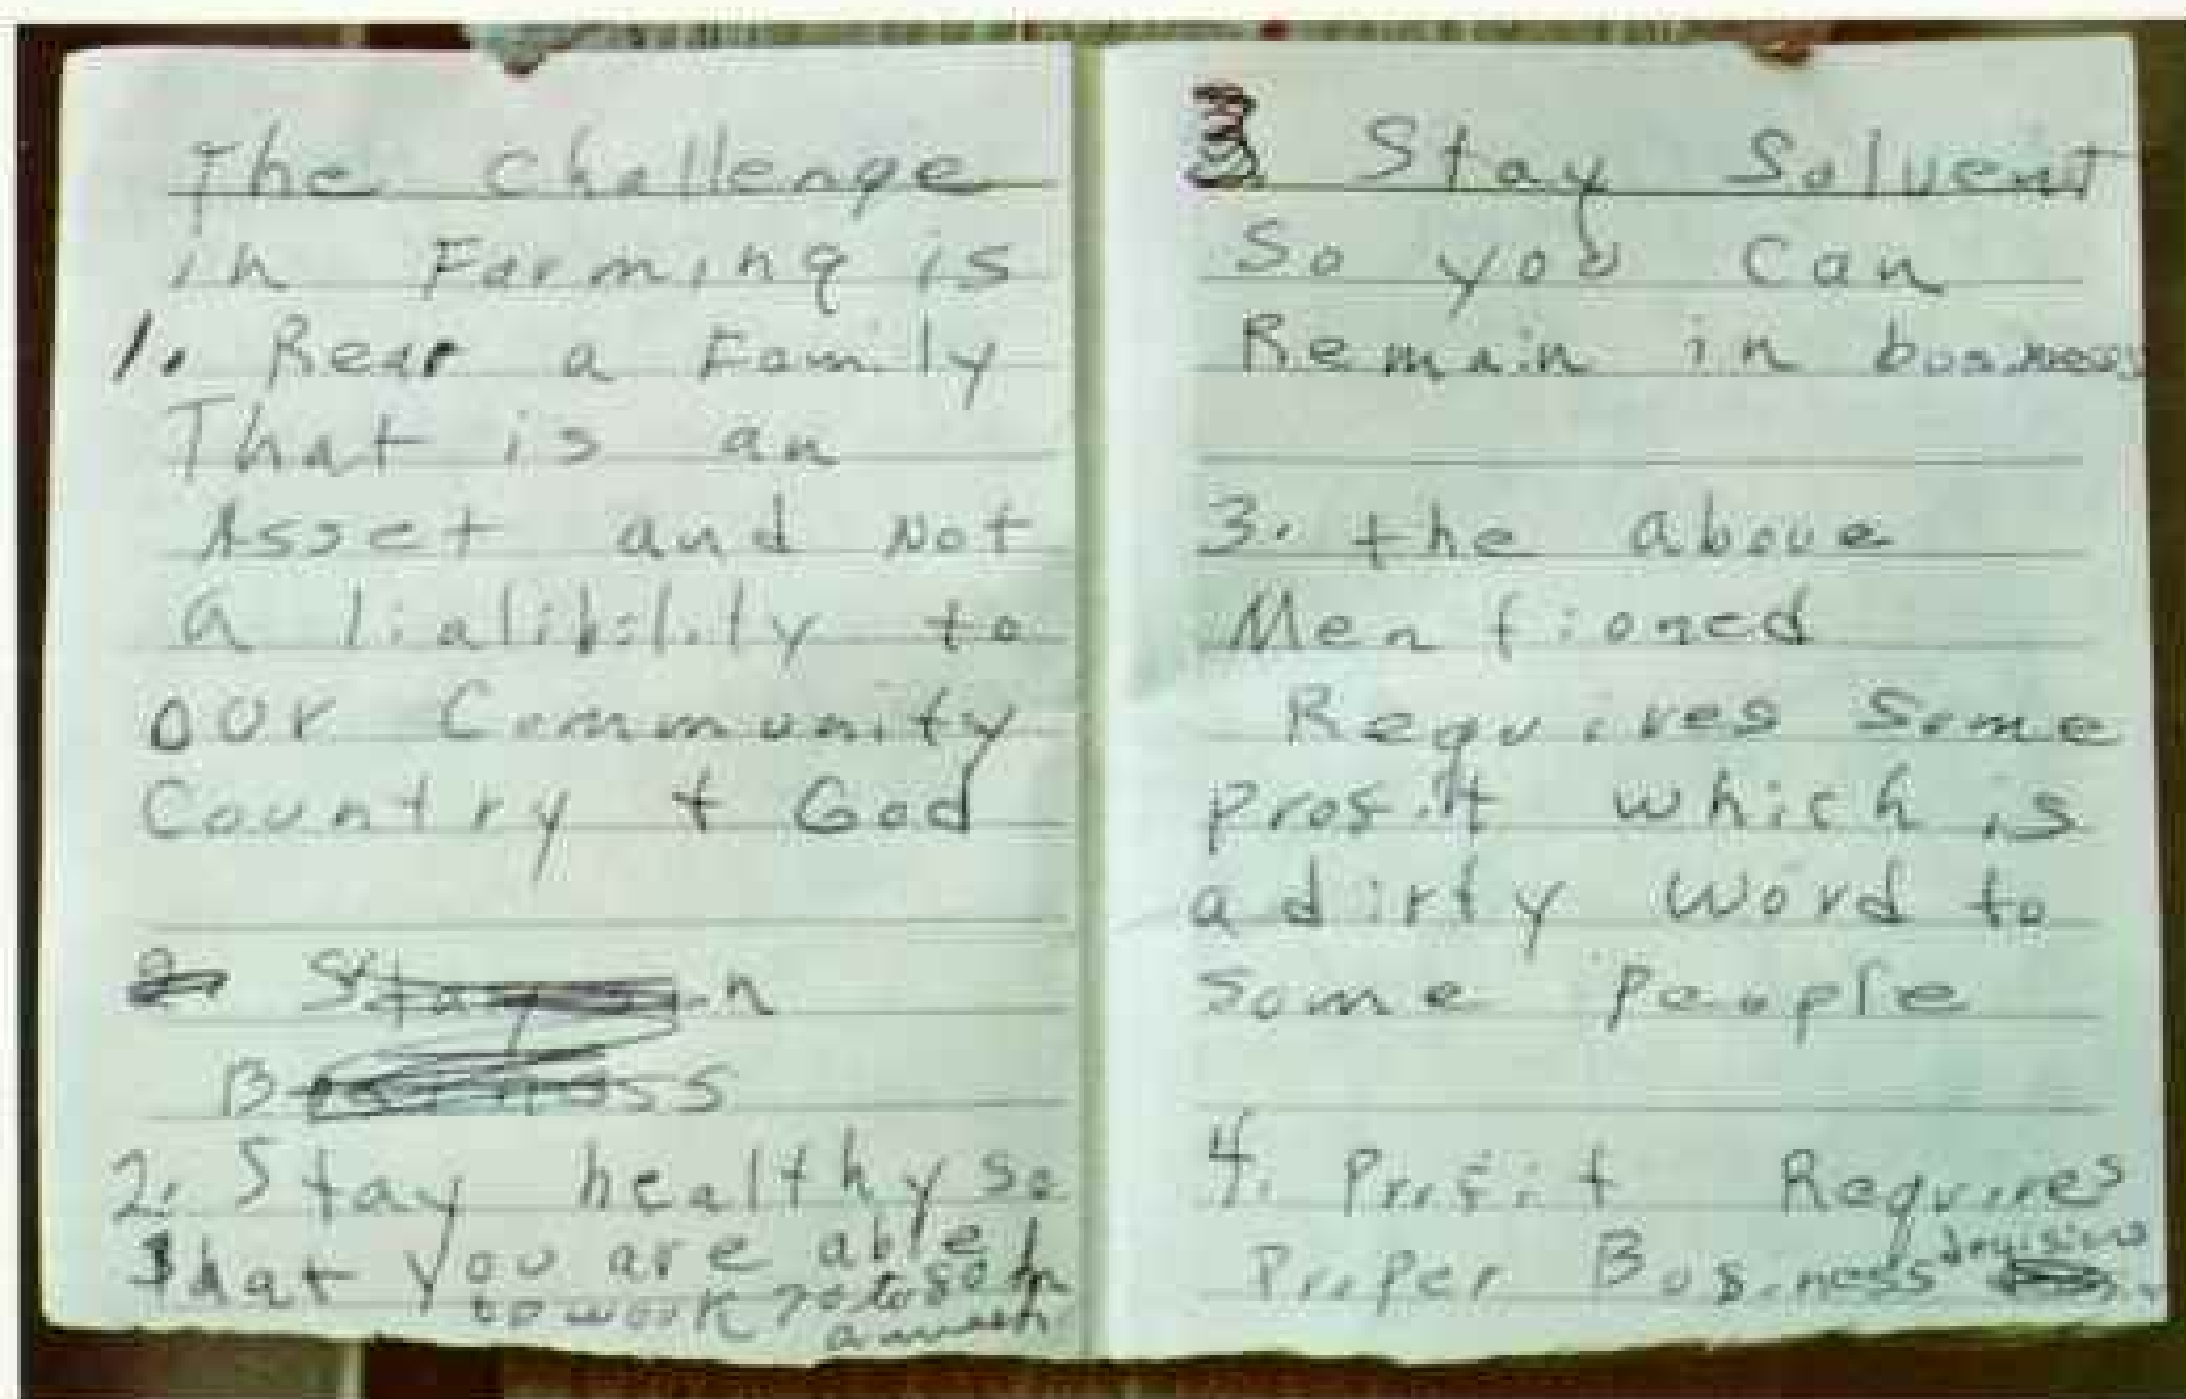 The challenge
in Farming is
1. Rear a Family
That is an
Asset and Not
a lialibility to
our Community
Country + God
2 Stay in
Business
2. Stay healthy so
that you are able
to work 70 to 80 hr
a week.
3. Stay Solvent
So you can
Remain in business
3. the above
Mentioned
Requires some
profit which is
a dirty word to
some People
4. Profit Requires
Proper Business decisions